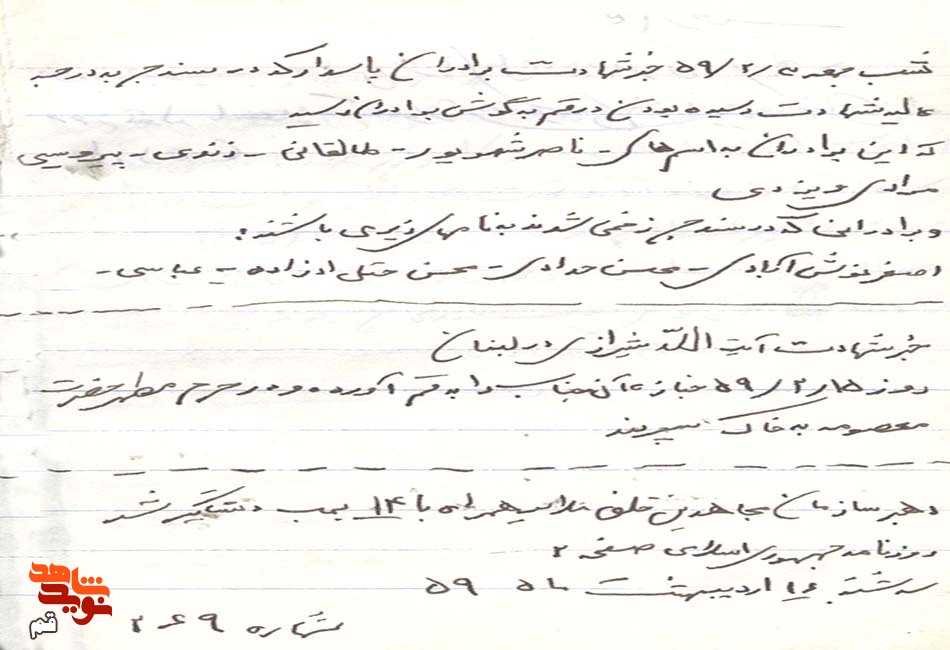 شب جمعه ۵۹/۲/ خبر شهادت برادران پاسدار که در سنندج به درجه
عالیه شهادت رسیده بودن در قم به گوش برادران رسید
که این برادران به اسم‌های - ناصر شهرپور - طالقانی - زندی - پیرویسی
مرادی و یزدی
و برادرانی که در سنندج زخمی شدند به نامهای زیر می باشند:
اصغر خوش آبادی - محسن حدادی - محسن - عباسی -
خبر شهادت آیت اللّه شیرازی در لبنان
روز ۵۹/۲/۱۵ جنازه آن جناب را به قم آورده و در حرم مطهر حضرت
معصومه به خاک سپردند
رهبر سازمان مجاهدین خلق همراه با ۱۴ بمب دستگیر شد
روزنامه جمهوری اسلامی صفحه ۲
سه شنبه ۱۶ اردیبهشت ماه ۵۹
شماره ۲۶۹
نوید شاهد
قم